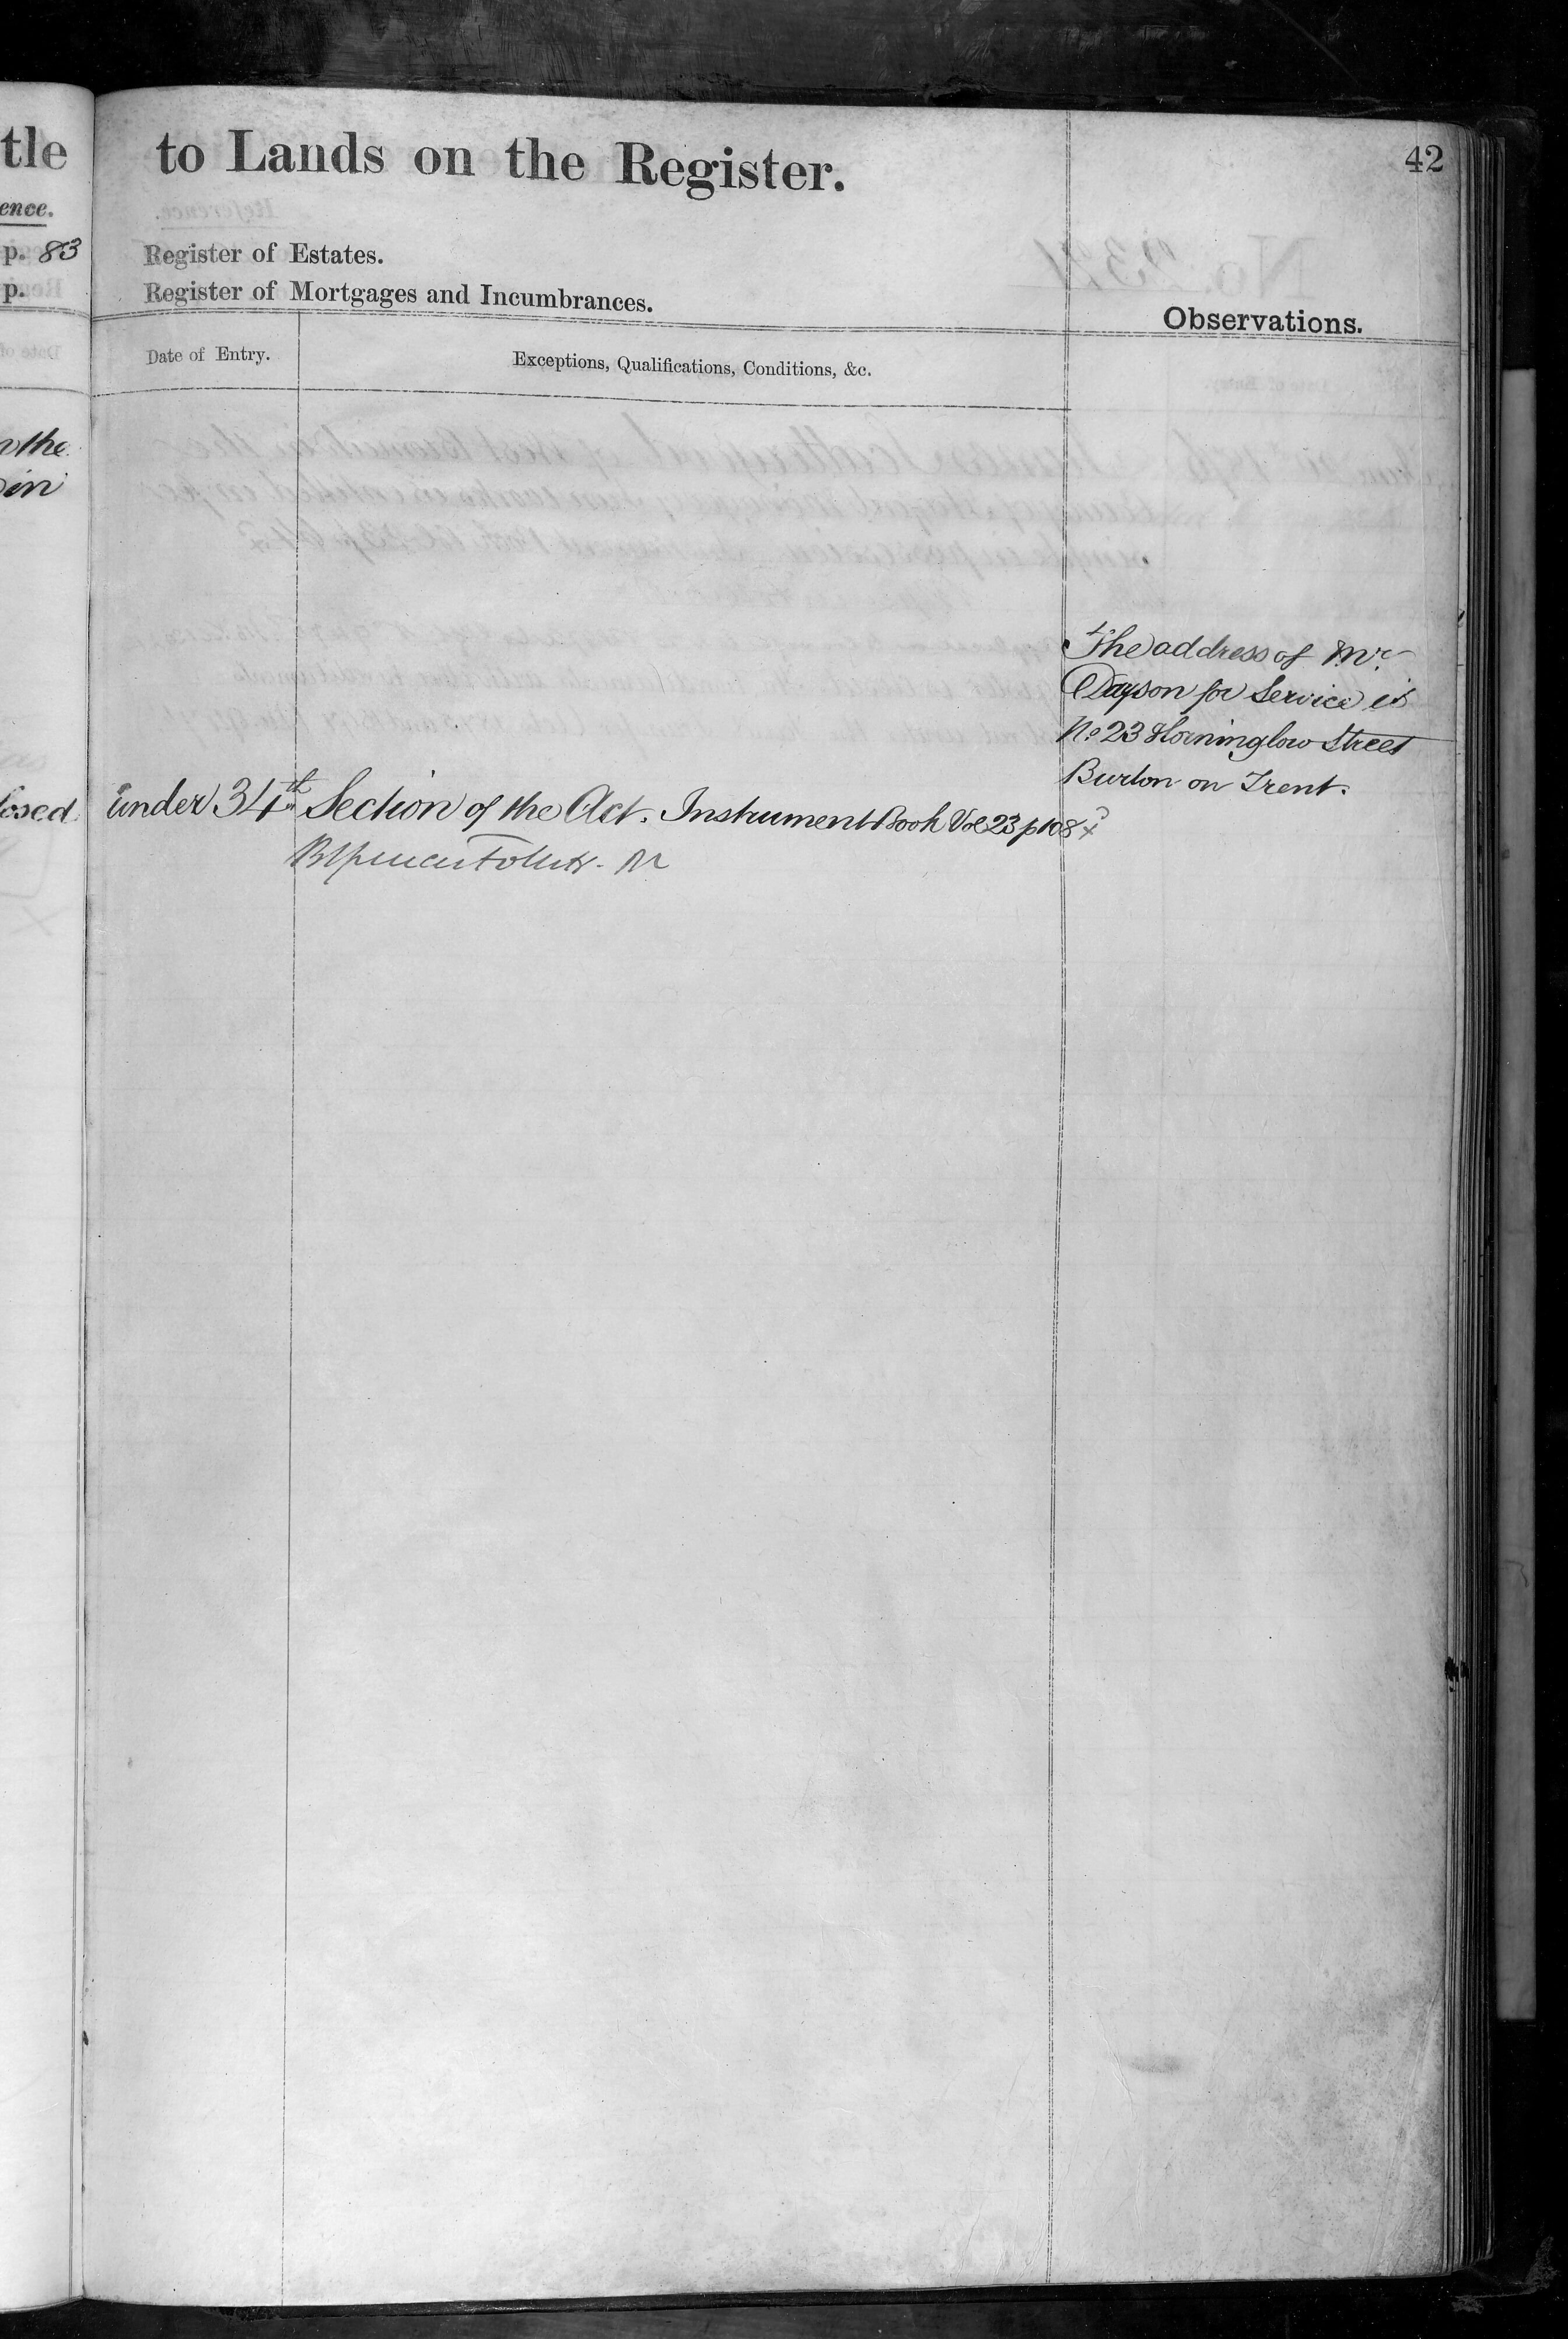 tle
ence.
p. 83
p.
n the
in
losed
to Lands on the Register.
42
Register of Estates.
Register of Mortgages and Incumbrances.
Observations.
Date of Entry.
Exceptions, Qualifications, Conditions, &c.
The address of Mr
Dayson for Service is
No 23 Horninglow Street
Burton on Trent.
under 34th Section of the Act. Instrument Book Vol 23 p 108